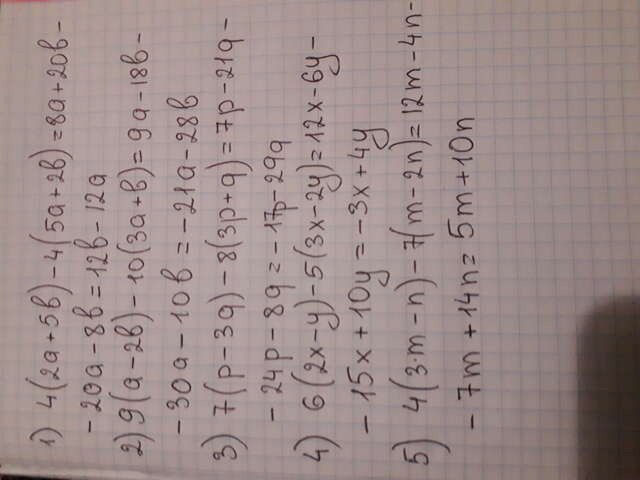 1) 4(2a+5b)-4(5a+2b)=8a+20b-
-20a-8b=12b-12a
2) 9(a-2b)-10(3a+b)=9a-18b-
-30a-10b=-21a-28b
3) 7(p-3q)-8(3p+q)=7p-21q-
-24p-8q=-17p-29q
4) 6(2x-y)-5(3x-2y)=12x-6y-
-15x+10y=-3x+4y
5) 4(3·m-n)-7(m-2n)=12m-4n-
-7m+14n=5m+10n